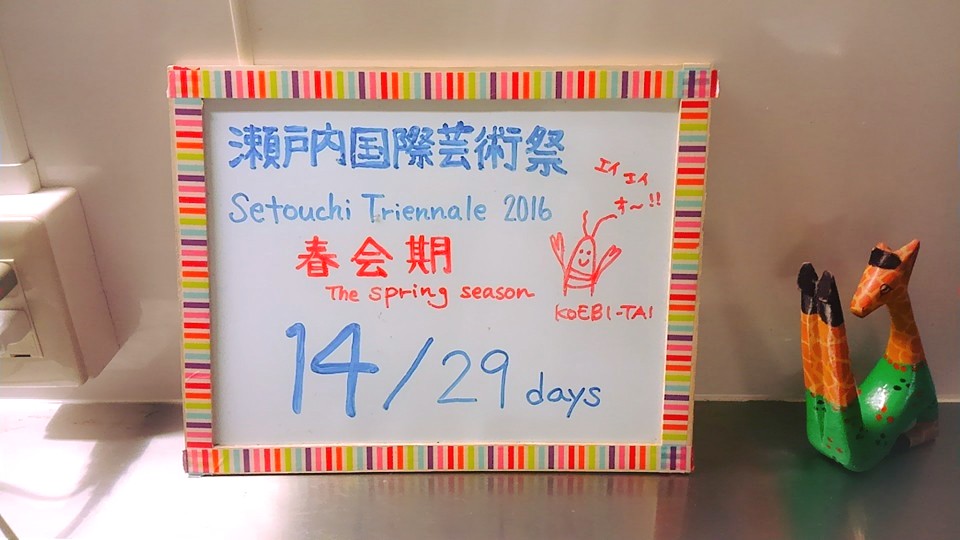 瀬戸内国際芸術祭
Setouchi Triennale 2016
春会期
The spring season
エイ エイ
オ〜!!
KOEBI-TAI
14/29 days